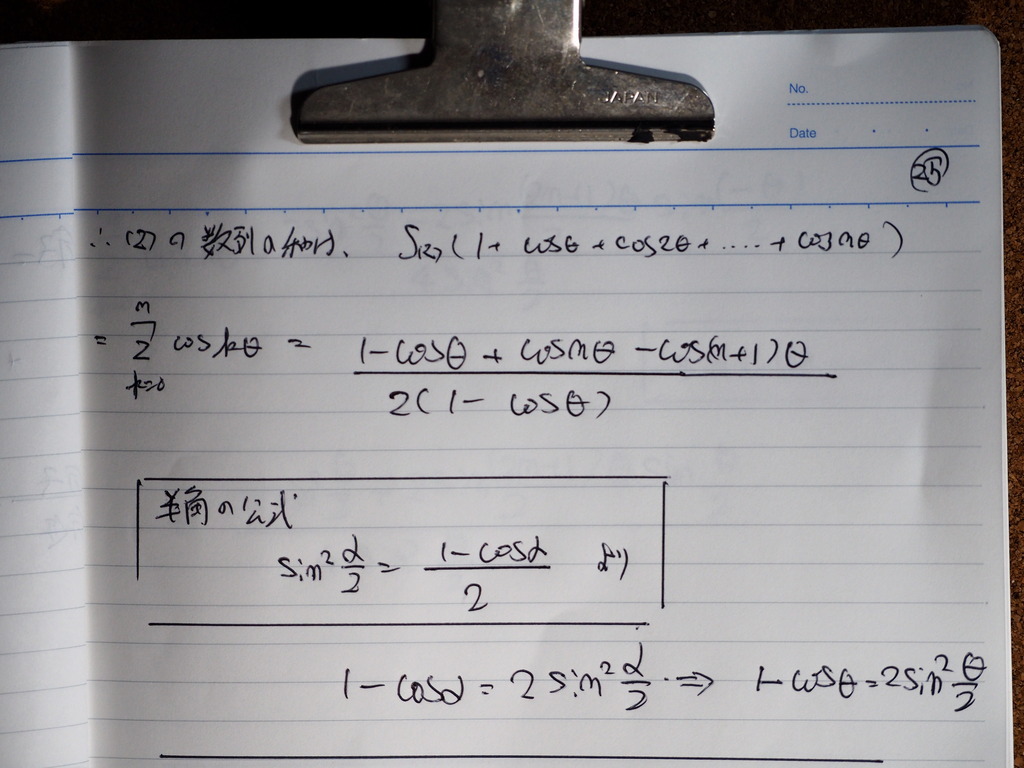 JAPAN
No.
Date
㉕
∴ (2) の 数列の和は、 S(2) (1 + cosθ + cos2θ + .... + cos nθ )
= Σ_{k=0}^{n} cos kθ = \frac{1-cosθ + cos nθ - cos(n+1)θ}{2(1 - cosθ)}
半角の公式
sin² \frac{α}{2} = \frac{1-cosα}{2} より
1-cosα = 2 sin² \frac{α}{2} ⇒ 1-cosθ = 2sin² \frac{θ}{2}